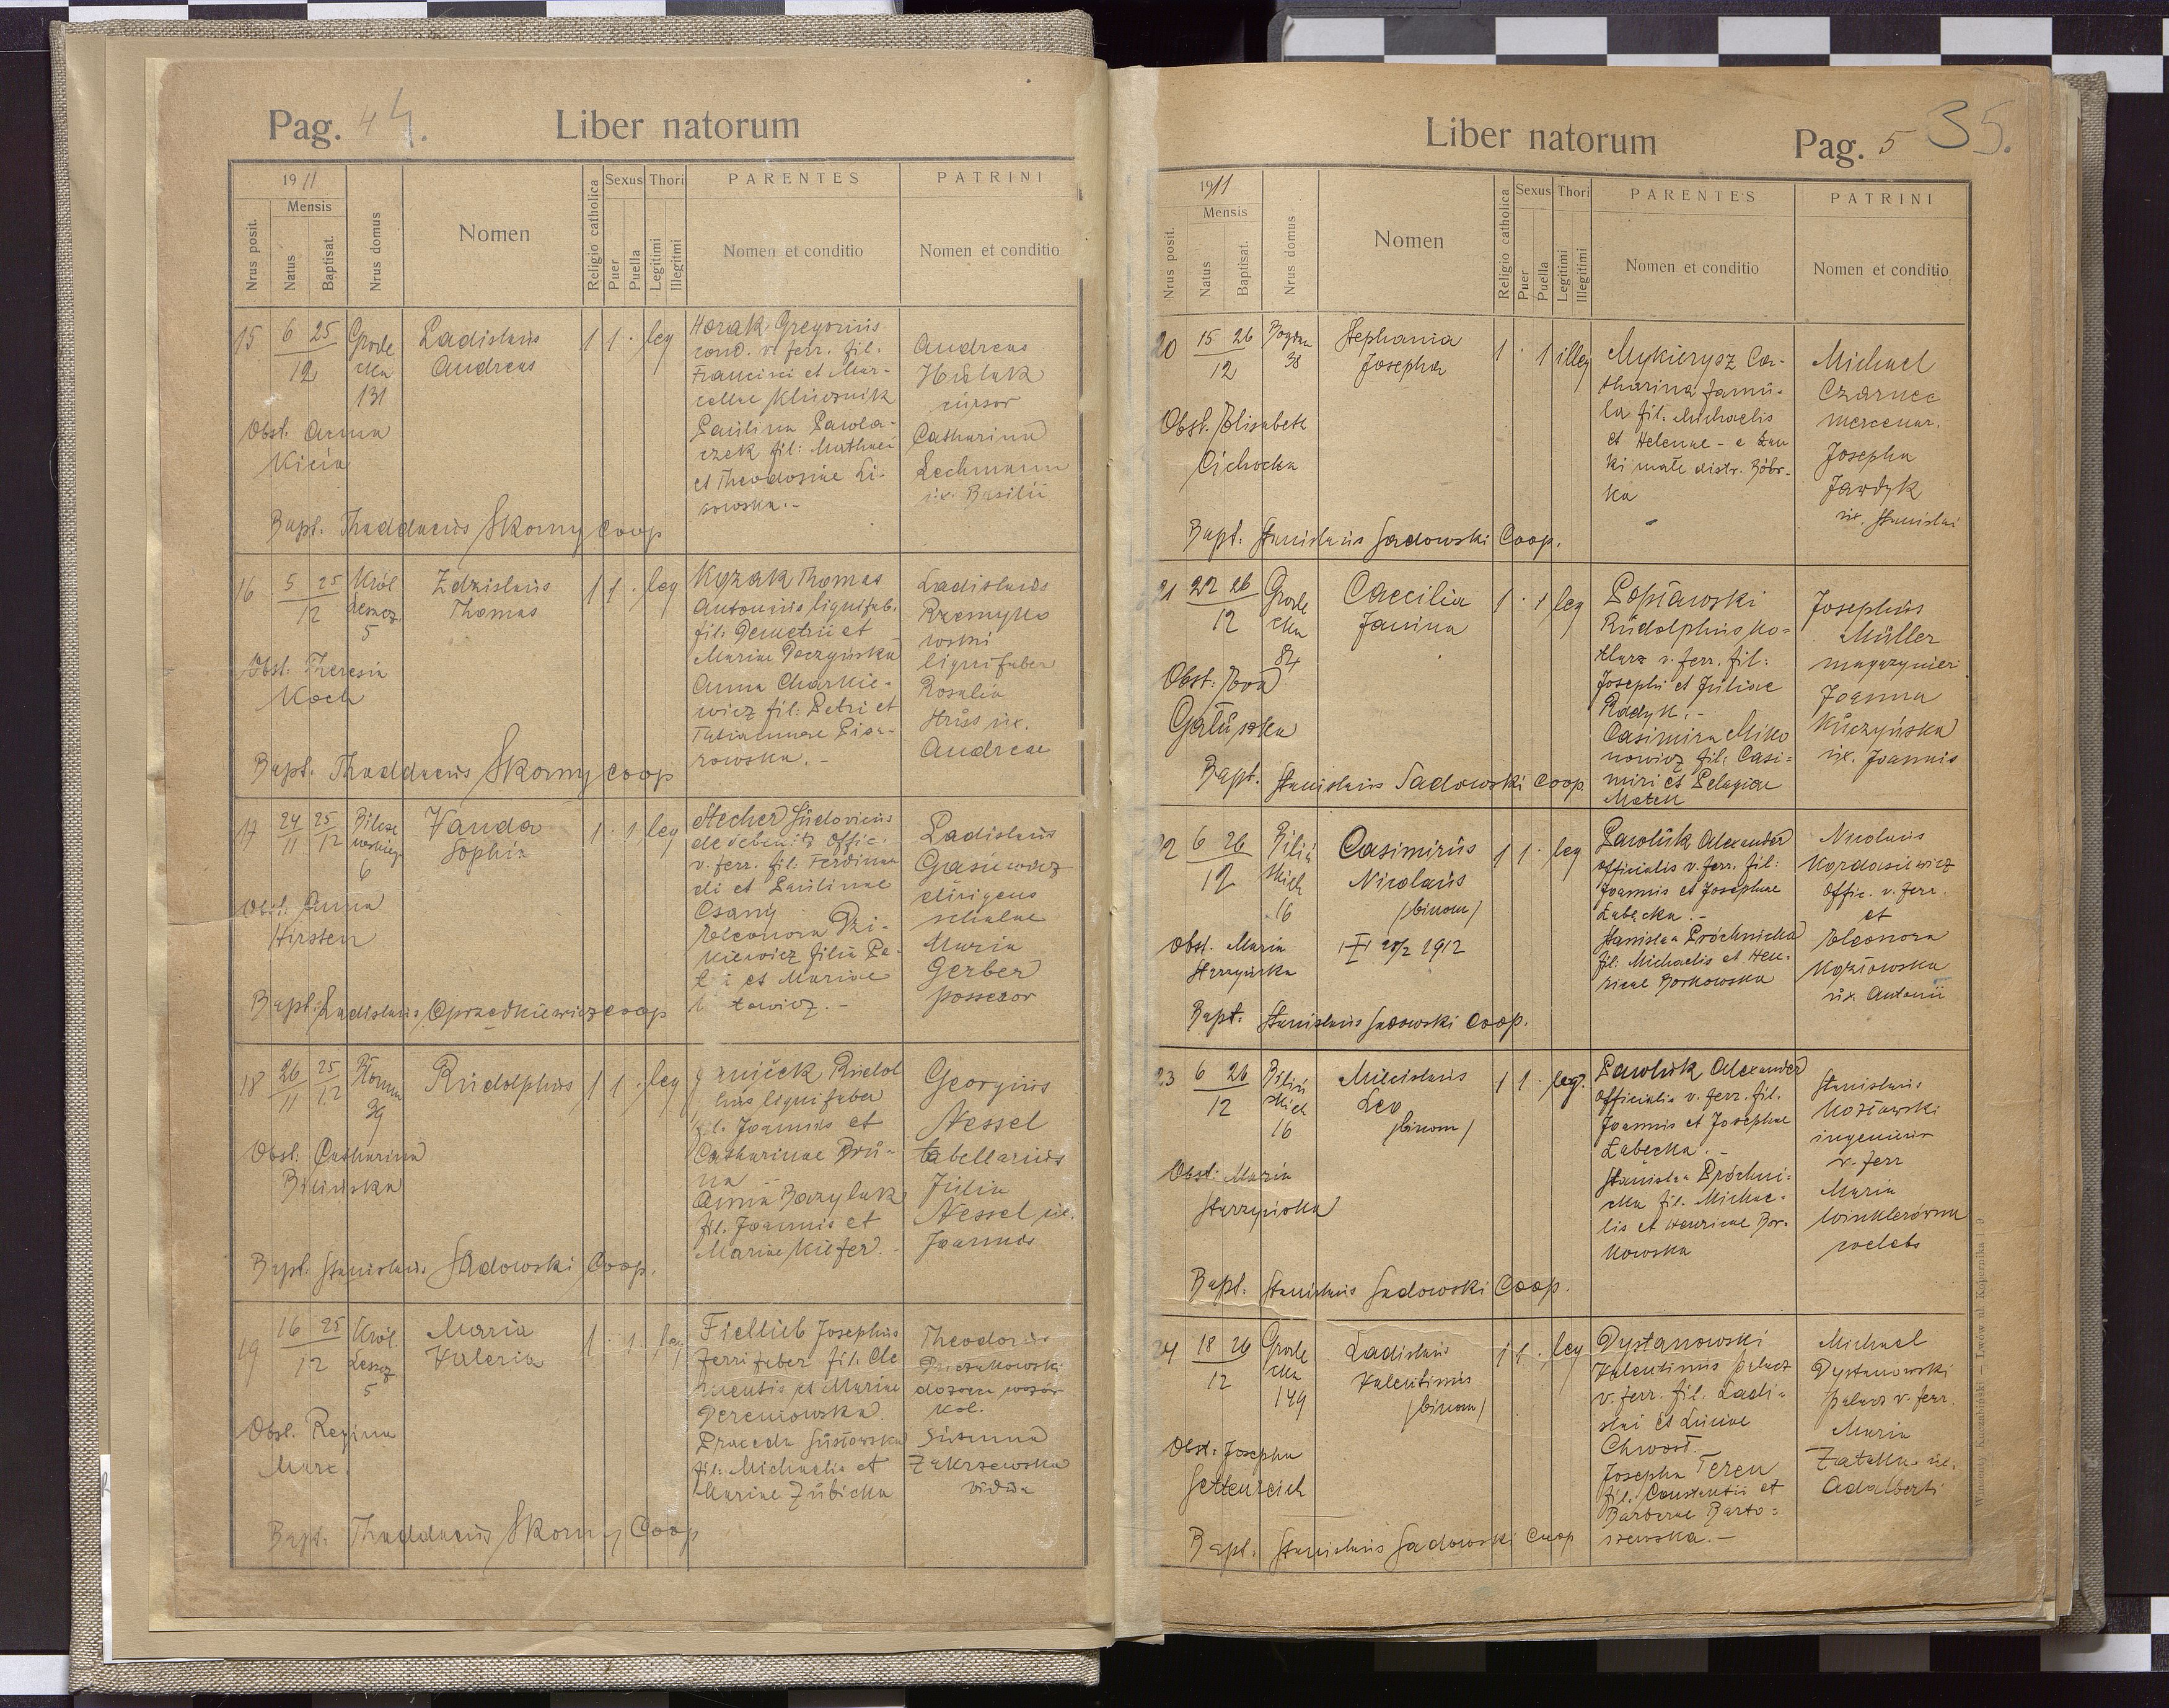 Pag. 4 4.
Liber natorum
1911
Mensis
Nrus posit.
Natus
Baptisat.
Nrus domus
Nomen
Religio catholica
Sexus
Puer
Puella
Thori
Legitimi
Illegitmi
PARENTES
Nomen et conditio
PATRINI
Nomen et conditio
15 6/12 25/12
Grode
cka
131
Ladislaus
Andreas
1 1 · leg
Horak Gregorius
cond. v. ferr. fil.
Francisci et Mar-
cellae Klucznik
Paulina Pawla-
czek fil: Mathaei
et Theodosiae Li-
sowska.-
Andreas
Hulak
cursor
Catharina
Lechmann
ux. Basilii
Obst. Anna
Kicia
Bapt. Thaddaeus Skorny Coop
16 5/12 25/12
Król
Leszcz.
5
Zdzislaus
Thomas
1 1 · leg
Kyzak Thomas
Antonius lignifab.
fil. Demetrii et
Mariae Poczyńska
Anna Charkie-
wicz fil: Petri et
Tatiannae Pisa-
rowska.-
Ladislaus
lignifaber
Rosalia
Hruś ux.
Andreae
Obst. Theresia
Koch
Bapt. Thaddaeus Skorny Coop
17 24/11 25/12
6
Vanda
Sophia
1 · 1 leg
Stecher Ludovicus
de Sebenitz Offic.
v. ferr. fil. Ferdinan
di et Paulinae
Csany
Eleonora
kiewicz filia Pe-
et Mariae
Ladislaus
Gasiewicz
dirigens
scholae
Maria
Gerber
possesor
Obst. Anna
Hirsten
Bapt. Ladislaus Oprzedkiewicz coop
18 26/11 25/12
39
Rudolphus
1 1 · leg
Janiček Rudol
hus lignifaber
fil. Joannis et
Catharinae Brů-
na
Anna Bazylak
fil. Joannis et
Mariae Kiefer.-
Georgius
Nessel
tabellarius
Julia
Nessel ux.
Joannis
Obst. Catharina
Bilińska
Bapt. Stanislaus Sadowski Coop.
19 16/12 25/12
Król.
Leszcz
5
Maria
Valeria
1 · 1 leg
Fiellieb Josephus
ferrifaber fil. Cle
mentis et Mariae
Dereniowska.
Praceda Susłowska
fil. Michaelis et
Mariae Zubicka
Theodorus
dozorca wozów
kol.
Susanna
Zakrzewska
vidua
Obst. Regina
Marc.
Bapt. Thaddaeus Skorny Coop
Liber natorum
Pag. 5 35.
1911
Mensis
Nrus posit.
Natus
Baptisat.
Nrus domus
Nomen
Religio catholica
Sexus
Puer
Puella
Thori
Legitimi
Illegitimi
PARENTES
Nomen et conditio
PATRINI
Nomen et conditio
20 15/12 26/12
38
Stephania
Josepha
1 · 1 illeg
Mykierysz Ca-
tharina famu-
la fil. Michaelis
et Helenae - e Łan
ki małe distr. Bóbr-
ka
Michael
Czarnec
mercenar.
Josepha
Jawdyk
ux. Stanislai
Obst. Elisabeth
Cichocka
Bapt. Stanislaus Sadowski Coop.
21 22/12 26/12
Grode
cka
84
Caecilia
Janina
1 · 1 leg
Popławski
Rudolphus ko-
tlarz v. ferr. fil:
Josephi et Juliae
Radyk.-
Casimira Miko
nowicz fil. Casi-
miri et Pelagiae
Matek
Josephus
Müller
magazynier
Joanna
Kuczyńska
ux. Joannis
Obst: Eva
Gałuszka
Bapt. Stanislaus Sadowski Coop
22 6/12 26/12
Biliń
skich
16
Casimirus
Nicolaus
/binom/
1 1 · leg
Pawluk Alexander
officialis v. ferr. fil:
Joannis et Josephae
Łabęcka.-
Stanisla Próchnicka
fil. Michaelis et Hen-
ricae Borkowska
Nicolaus
Kordasiewicz
Offic. v. ferr.
et
Eleonora
Kozłowska
ux. Antonii
Obst. Maria
Starzyńska
1912
Bapt. Stanislaus Sadowski Coop.
23 6/12 26/12
Biliń
skich
16
Miecislaus
Leo
/binom/
1 1 · leg.
Pawluk Alexander
officialis v. ferr. fil.
Joannis et Josephae
Łabecka.-
Stanisla Próchni-
cka fil. Michae-
lis et Henricae Bor-
kowska
Stanislaus
Kozłowski
ingenieur
v. ferr
Maria
Winklerówna
coelebs
Obst. Maria
Starzyńska
Bapt. Stanislaus Sadowski Coop.
24 18/12 26/12
Grode
cka
149
Ladislaus
Valentinus
/binom/
1 1 · leg
Dystanowski
Valentinus palacz
v. ferr. fil. Ladi-
slai et Luciae
Chwost.-
Josepha Teren
fil. Constantii et
Barbarae Barto-
szewska.-
Michael
Dystanowski
palacz v. ferr.
Maria
Zatchka ux.
Adalberti
Obst. Josepha
Gettenreich
Bapt. Stanislaus Sadowski Coop
Lwów ul. Kopernika 19